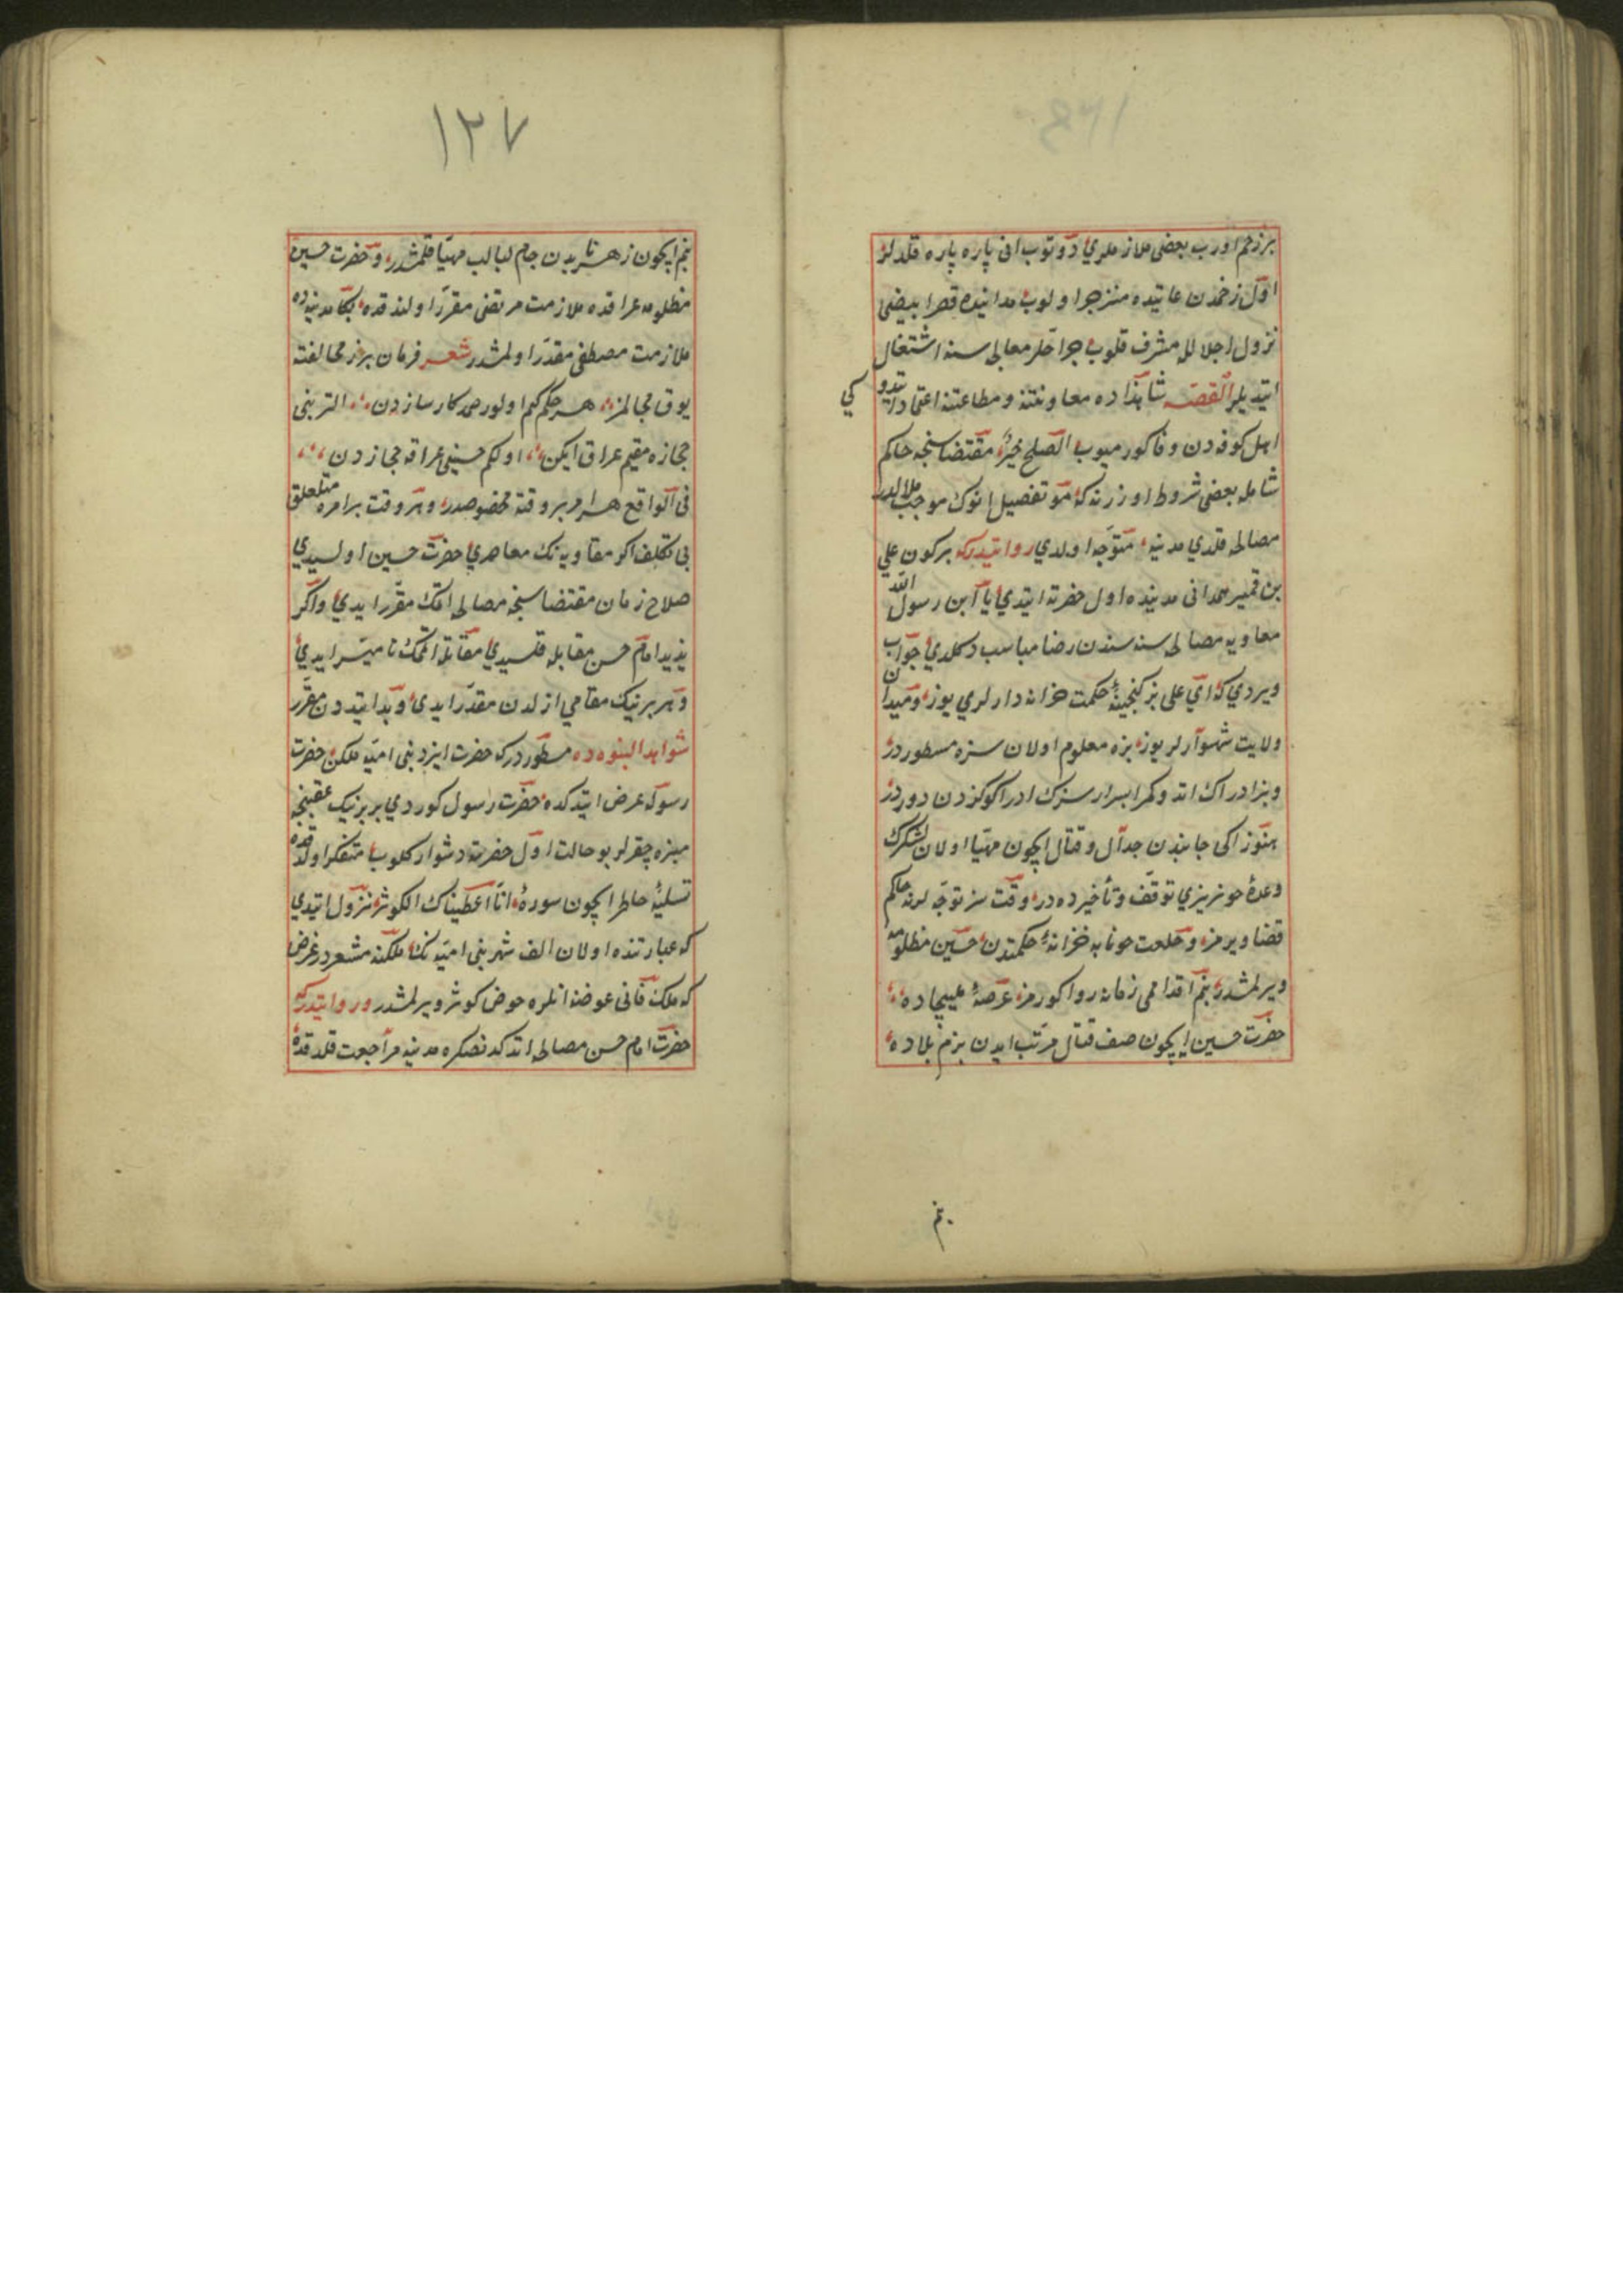 بر زخم اورب بعضی ملازملری دوتوب انی پاره پاره قلدلر
اول زخمدن غایتده منزجر اولوب مداینده قصر ابیضی
نزول اجلالله مشرف قلوب جراحلر معالجه سنه اشتغال
ایتدیلر القصه شاهزاده معاونتنه و مطاعتنه اعتماد ایتدوکی
اهل کوفه دن وفا کورمیوب الصلح خیر مقتضاسنجه حاکم
شامله بعضی شروط اوزرنه که تفصیل انوك موجب ملالدر
مصالحه قلدی مدینه متوجه اولدی روایتدر که بر کون علی
بن همدانی مدینده اول حضرته ایتدی یا ابن رسول الله
معاویه مصالحه سنه سندن رضا مناسب دکلدی جواب
ویردی که ای علی بز کنجینهٔ حکمت خزانه دارلری یوز و میدان
ولایت شهسوارلریوز بزه معلوم اولان سزه مسطوردر
و بز ادراك اتدوکمز اسرار سزك ادراکوکزدن دوردر
هنوز ایکی جانبدن جدال و قتال ایچون مهیا اولان لشکرك
وعدهٔ خونریزی توقف و تأخیرده در وقت سز توجه لرنه حاکم
قضا ویرمز و خلعت خونابه خزانهٔ حکمتدن حسین مظلومه
ویرلمشدر بنم اقدامی زمانه روا کورمز عرصهٔ هیجاده
حضرت حسین ایچون صف قتال مرتب ایدن بزم بلاده
بنم
١٢٧
بنم ایچون زهر نابدن جام لبالب مهیا قلمشدر و حضرت حسین
مظلومه عراقده ملازمت مرتضی مقرر اولندقده بکا مدینه ده
ملازمت مصطفی مقدر اولمشدر شعر فرمان بز مخالفته
یوق مجالمز هر حکم کم اولور صمد کارسازدن التر بنی
حجازه مقیم عراق ایکن اولکم حسینی عراقه حجازدن
فی الواقع هر امر بر وقته مخصوصدر و هر وقت بر امره متعلق
بی تکلف اکر معاویه نك معاصری حضرت حسین اولسیدی
صلاح زمان مقتضاسنجه مصالحه اتمك مقرر ایدی و اکر
یزید امام حسن مقابله قلسیدی مقاتله اتمك نا میسر ایدی
و هر برینك مقامی ازلدن مقدر ایدی و بدایتدن مقرر
شواهد النبوه ده مسطوردر که حضرت ایزد بنی امیه ملکن حضرت
رسوله عرض ایتدکده حضرت رسول کوردی بر برینك عقبنجه
منبره چقرلر بو حالت اول حضرته دشوار کلوب متفکر اولدقده
تسلیهٔ خاطر ایچون سورهٔ انا اعطیناك الکوثر نزول ایتدی
که عبارتنده اولان الف شهر بنی امیه نك ملکنه مشعر در غرض
که ملك فانی عوضنه انلره حوض کوثر ویرلمشدر و روایتدر که
حضرت امام حسن مصالحه اتدکدنصکره مدینه مراجعت قلدقده